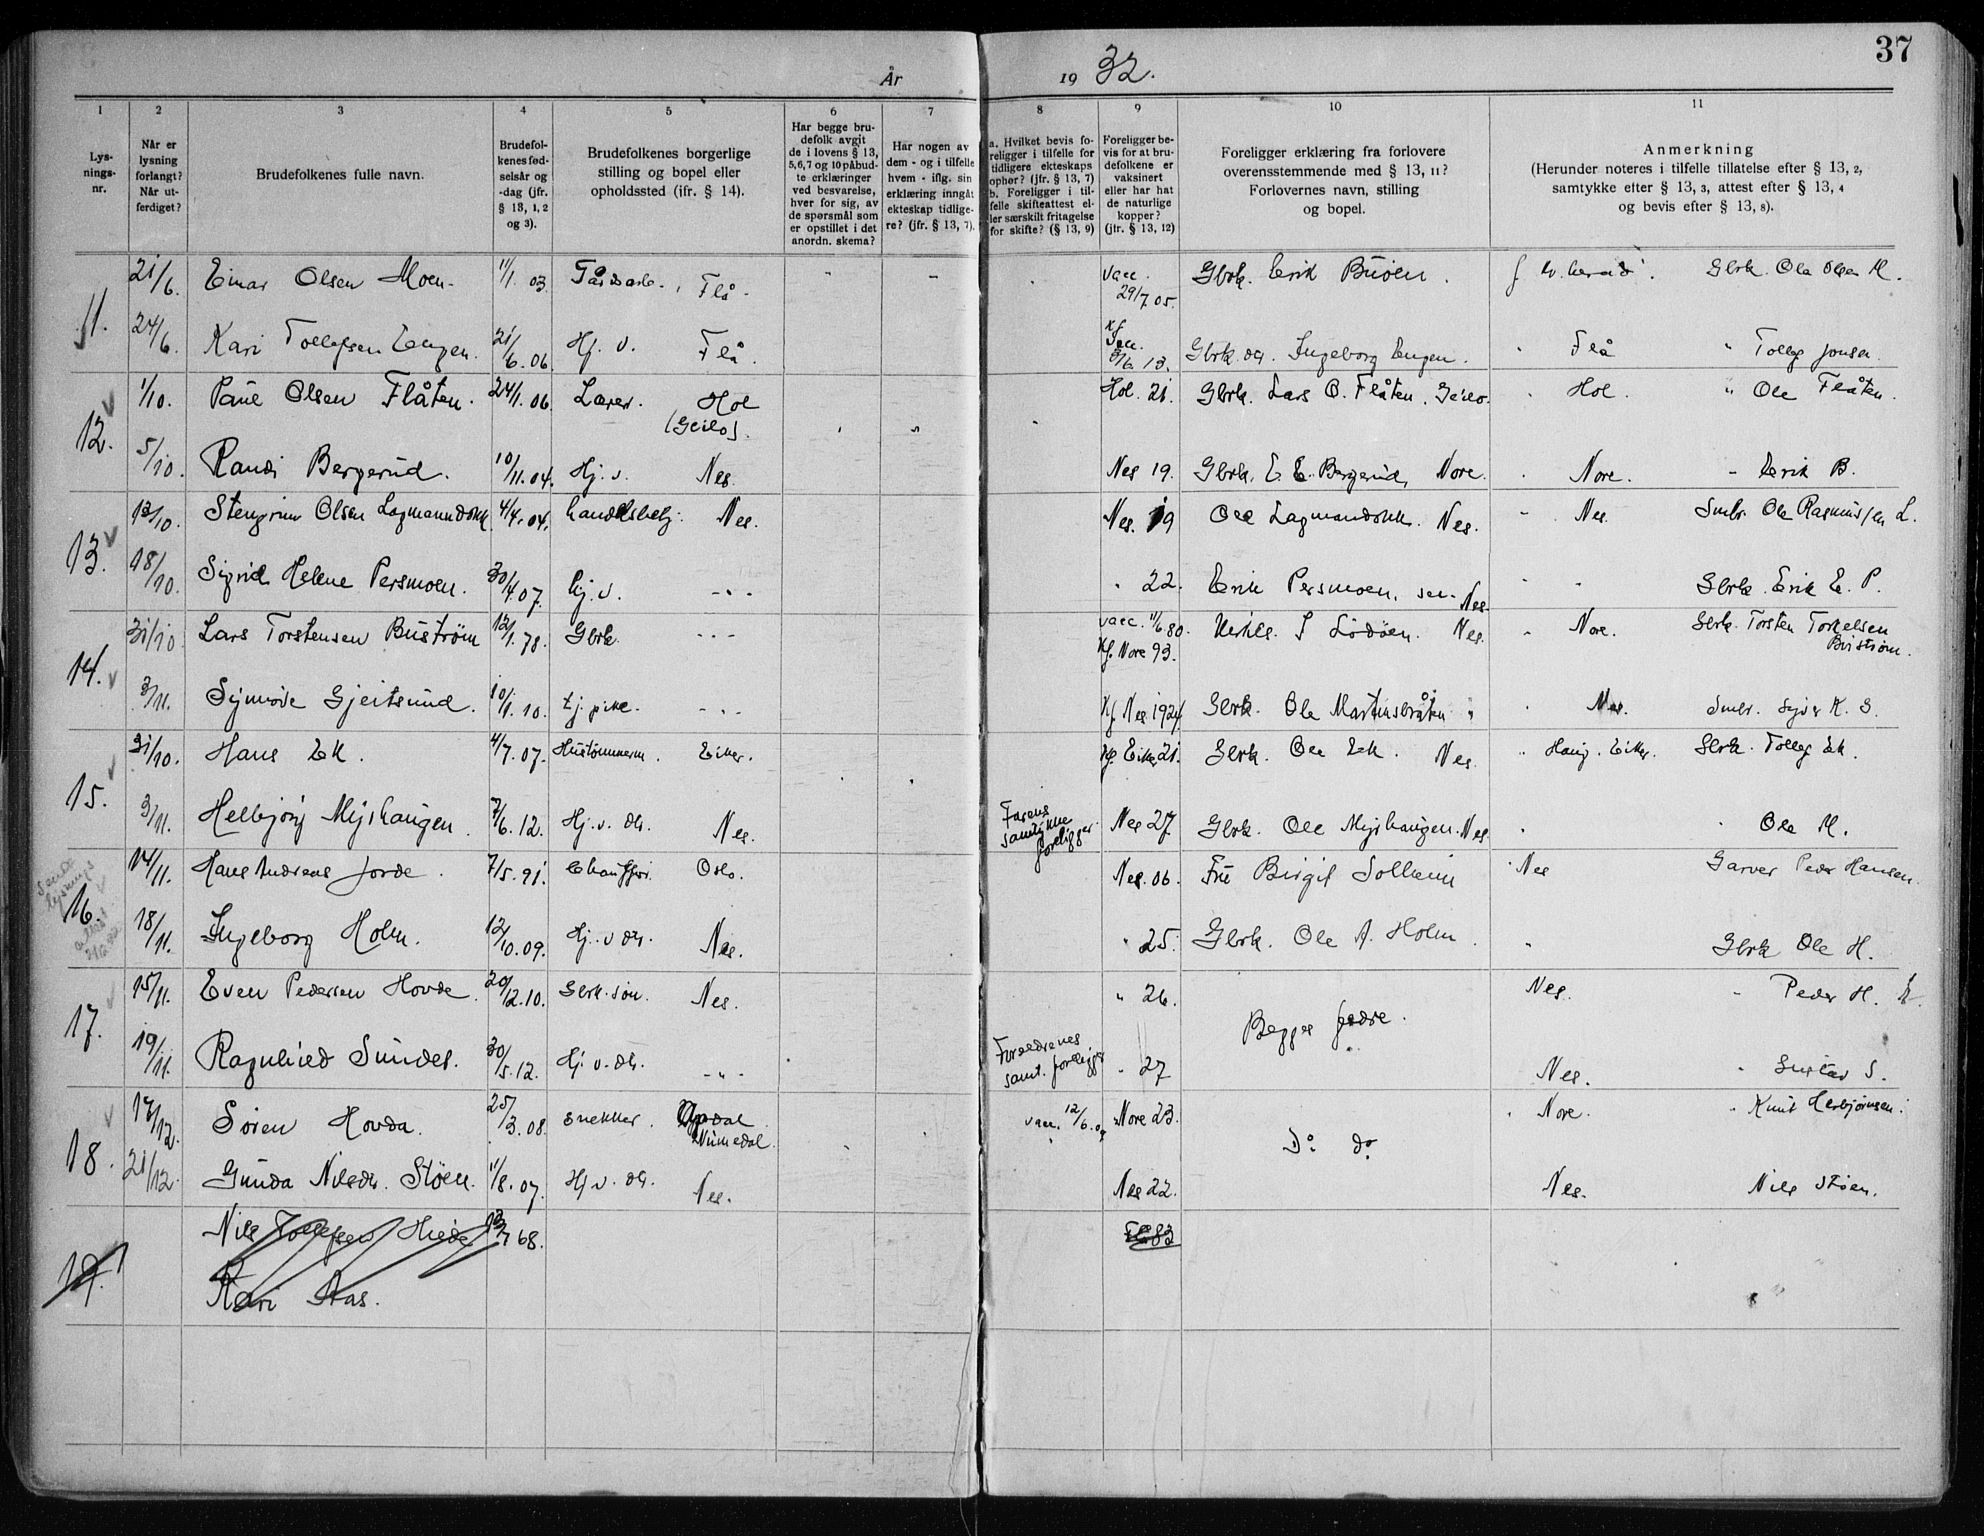 37
År 1932.
1 2 3 4 5 6 7 8 9 10 11
Lysningsnr.
Når er lysning forlangt? Når utferdiget?
Brudefolkenes fulle navn.
Brudefolkenes fødselsår og -dag (jfr. § 13, 1, 2 og 3).
Brudefolkenes borgerlige stilling og bopel eller opholdssted (ifr. § 14).
Har begge brudefolk avgit de i lovens § 13, 5, 6, 7 og 10 påbudte erklæringer ved besvarelse, hver for sig, av de spørsmål som er opstillet i det anordn. skema?
Har nogen av dem - og i tilfelle hvem - iflg. sin erklæring inngåt ekteskap tidligere? (jfr. § 13, 7).
a. Hvilket bevis foreligger i tilfelle for tidligere ekteskaps ophør? (jfr. § 13, 7) b. Foreligger i tilfelle skifteattest eller særskilt fritagelse for skifte? (§ 13, 9)
Foreligger bevis for at brudefolkene er vaksinert eller har hat de naturlige kopper? (jfr. § 13, 12)
Foreligger erklæring fra forlovere overensstemmende med § 13, 11? Forlovernes navn, stilling og bopel.
Anmerkning (Herunder noteres i tilfelle tillatelse efter § 13, 2, samtykke efter § 13, 3, attest efter § 13, 4 og bevis efter § 13, 8).
11. 21/6. Einar Olsen Moen. 11/1. 03. Flå. vacc. 29/7. 05. Gbrk. Erik Buöen. Gbrk. Ola Olsen M.
24/6. Kari Tollefsen Engen. 21/6. 06. Hj. v. Flå. Gbrk. Ingeborg Engen. " Flå " Tollef Jonsen.
12. 1/10. Paul Olsen Flåten. 24/1. 06. Lærer. Hol (Geilo). Hol. 21. Gbrk. Lars O. Flåten. Geilo. " Hol. " Ole Flåten.
5/10. Randi Bergerud. 10/11. 04. Hj. v. Nes. Nes 19. Gbrk. E. E. Bergerud, Nore. " Nore. " Erik B.
13. 13/10. Stengrim Olsen Lagmanndokk 4/4. 04. handelsbetj. Nes. Nes. 19 Ole Lagmandokk. Nes. " Nes. Smbr. Ole Rasmussen L.
18/10. Sigrid Helene Persmoen. 30/4. 07. hj. v. - " - " 22. Erik Persmoen, sen. Nes. " " Gbrk. Erik E. P.
14. 31/10 Lars Torstensen Buström 12/1. 78. Gbrk. - " - vacc. 11/6. 80. Kf. Nore 93. S Lödöen. Nes. " Nore. Gbrk. Torsten Torkelsen Buström.
3/11. Synnöve Gjeitsund. 10/1. 10. tj. pike. - " - Kf. Nes. 1924. Gbrk. Ole Martinsbråten " " Nes. Smbr. Syver K. G.
15. 31/10. Hans Ek. 4/7. 07. Hustømmerm. Eiker. Kf. Eiker 21. Gbrk. Ole Ek. Nes " Haug. Eiker. Gbrk. Tollef Ek.
3/11. Helbjörg Myrhaugen. 7/6. 12. Hj. v. dtr. Nes. Farens samtykke foreligger. Nes 27. Gbrk. Ole Myrhaugen. Nes. " " Ole M.
16. 14/11. Hans Andreas Jorde. 7/5. 91. Chauffør. Oslo. Nes. 06. Fru Birgit Solheim " Nes Garver Peder Hansen.
18/11. Ingeborg Holm. 12/10. 09. Hj. v. dtr. Nes. " 25. Gbrk. Ole A. Holm. " Gbrk Ole H.
17. 15/11. Even Pedersen Hovde. 20/12. 10. Gbrk. søn. Nes. " 26. Begges fedre. Nes. " Peder H.
19/11. Ragnhild Sundes. 30/5. 12. Hj. v. dtr. - " - Foreldrenes samt. foreligger " 27 Nes. " Gustav S.
18. 17/12. Sören Hovda. 25/3. 08. snekker. Opdal Numedal. vacc. 12/6. 09 Nore 23. Do do " Nore. " Knut Herbjørnsen.
21/12. Gunda Nilsdtr. Stöen. 11/8. 07. Hj. v. dtr. Nes. Nes 22. Nes. Nils Stöen.
19. Nils Tollefsen 68. 83
Kari Aas.